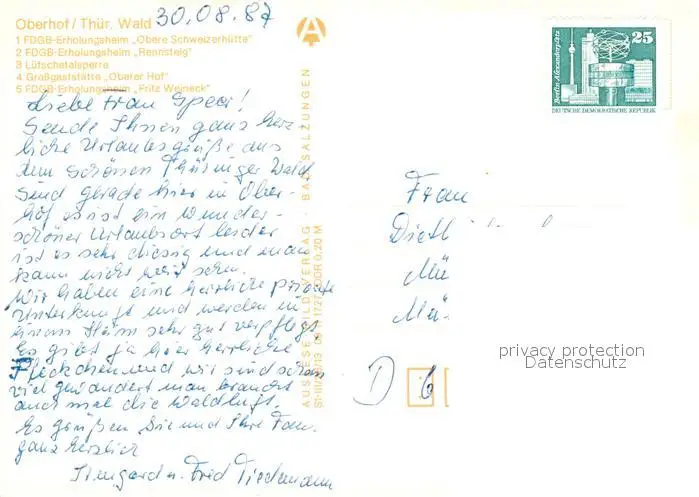 Oberhof / Thür. Wald 30.08.87
1 FDGB-Erholungsheim „Obere Schweizerhütte"
2 FDGB-Erholungsheim „Rennsteig"
3 Lütschetalsperre
4 Großgaststätte „Oberer Hof"
5 FDGB-Erholungsheim „Fritz Weineck"
Liebe Frau Speer!
Sende Ihnen ganz herz-
liche Urlaubsgrüße aus
dem schönen Thüringer Wald
Sind gerade hier in Ober-
hof es ist ein wunder-
schöner Urlaubsort leider
ist es sehr diesig und man
kann nicht weit sehn.
Wir haben eine herrliche private
Unterkunft und werden in
einem Heim sehr gut verpflegt
Es gibt ja hier herrliche
Fleckchen und wir sind schon
viel gewandert man braucht
auch mal die Waldluft.
Es grüßen Sie und Ihre Fam.
ganz herzlich
Irmgard u. Fred Tiedemann
AUSLESE-BILD-VERLAG · BAD SALZUNGEN
DDR 0,20 M
Berlin, Alexanderplatz
25
DEUTSCHE DEMOKRATISCHE REPUBLIK
Frau
Dietl
Mü
Mä
D 6
privacy protection
Datenschutz